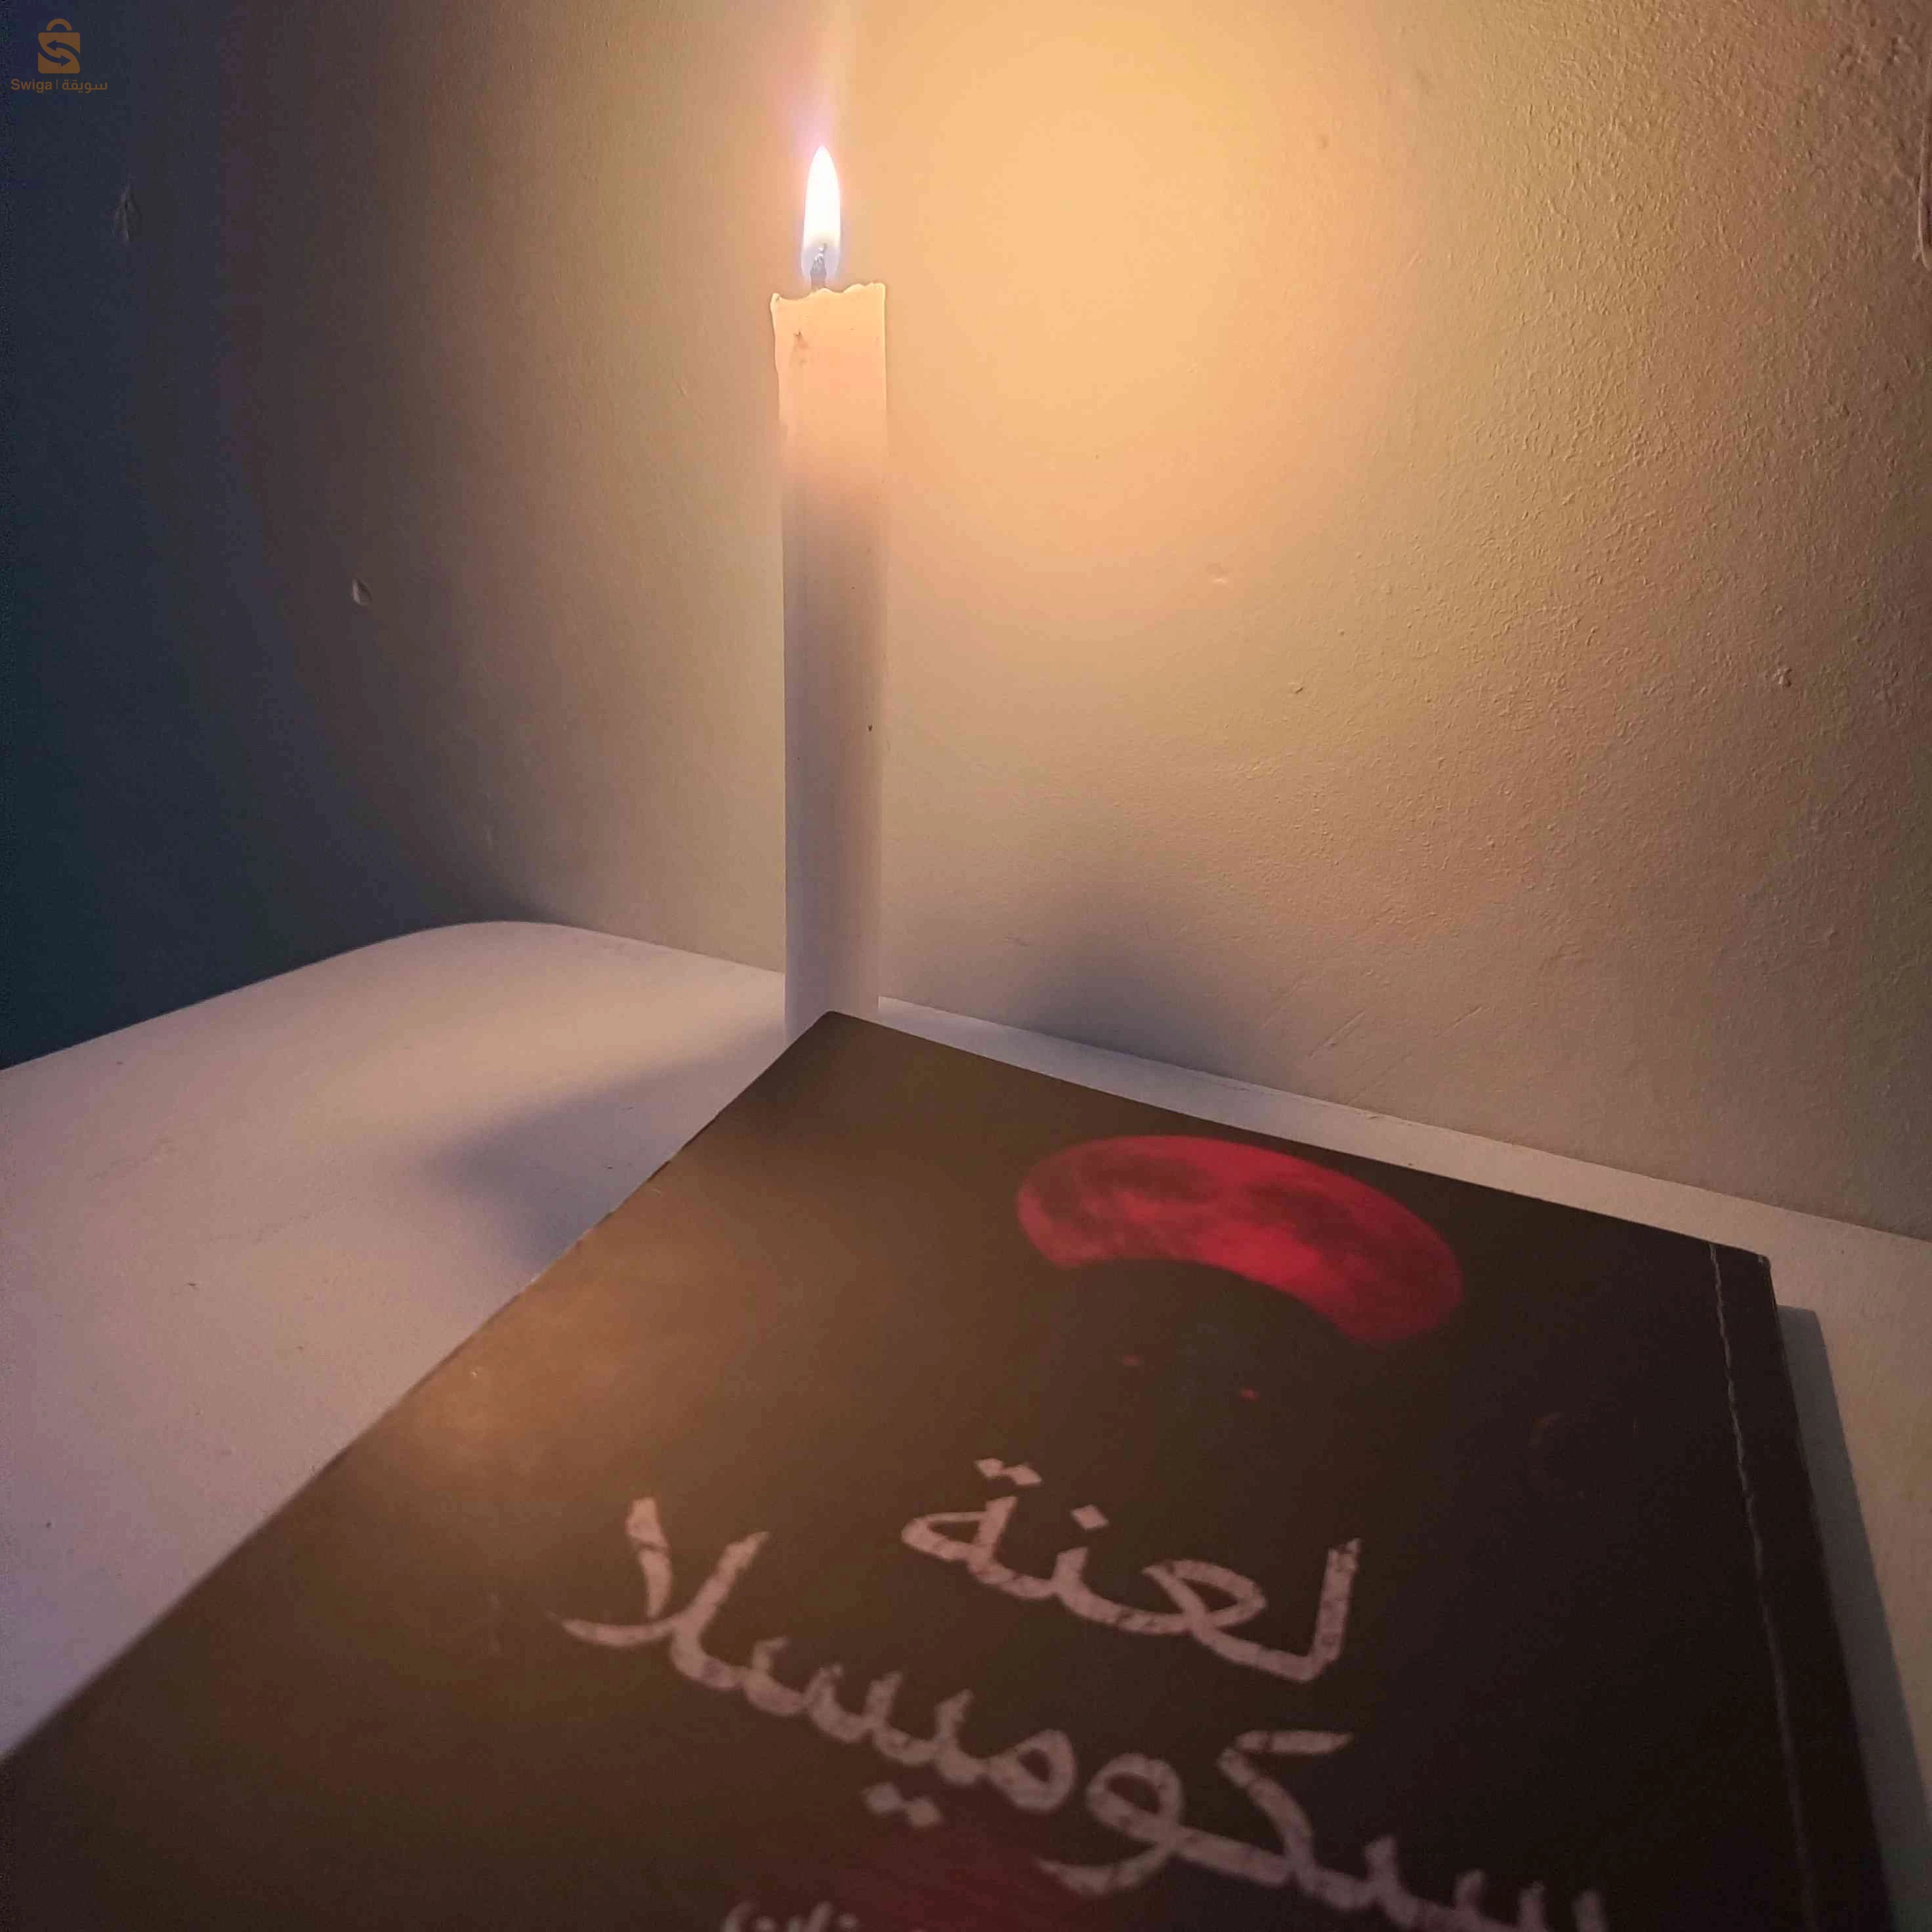 Swiga | سويقة
لعنة
سكوميسلا